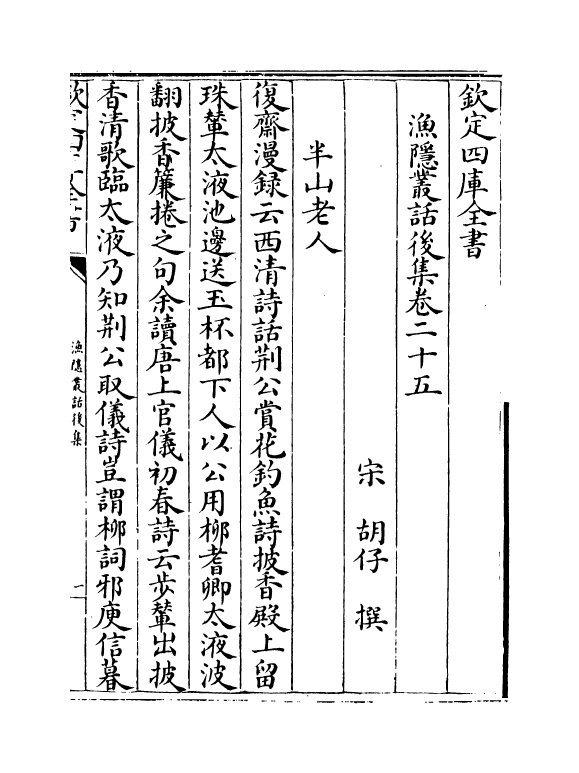 欽定四庫全書
漁隱叢話後集卷二十五
宋 胡仔 撰
半山老人
復齋漫録云西清詩話荆公賞花釣魚詩披香殿上留
珠輦太液池邊送玉杯都下人以公用柳耆卿太液波
翻披香簾捲之句余讀唐上官儀初春詩云步輦出披
香清歌臨太液乃知荆公取儀詩豈謂柳詞邪庾信暮
欽定四庫全書
漁隱叢話後集